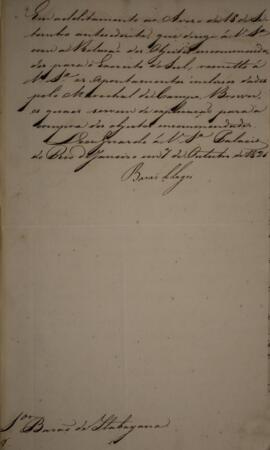 Em additamento ao Aviso de 18 de Se-
tembro antecedente, que dirigi a V. Sª
com a Relação dos Objectos encommenda-
dos para o Exercito do Sul, remetto a
V. Sª os Apontamentos inclusos dados
pelo Marechal de Campo Brown,
os quaes servem de explicação para a
compra dos objectos encommendados.
Deos Guarde a V. Sª Palacio
do Rio de Janeiro em 7 de Outubro de 1826
Barão de Lages
Sor Barão de Itabayana